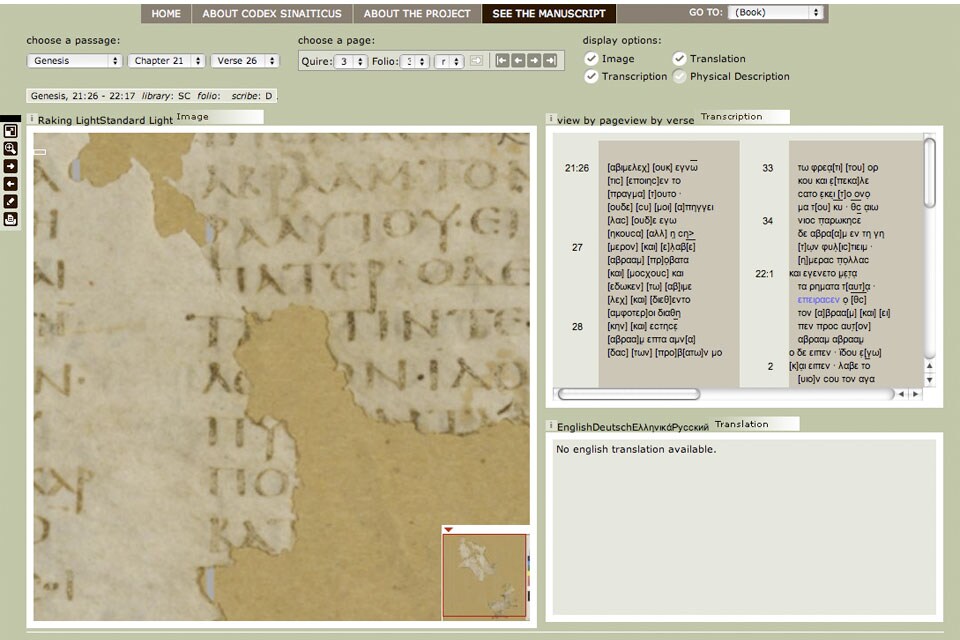 HOME ABOUT CODEX SINAITICUS ABOUT THE PROJECT SEE THE MANUSCRIPT GO TO: (Book)
choose a passage:
Genesis Chapter 21 Verse 26
choose a page:
Quire: 3 Folio: r
display options:
Image Translation
Transcription Physical Description
Genesis, 21:26 - 22:17 library: SC folio: scribe: D
i Raking LightStandard Light Image
ΑΚΡΑΑΜΤΟΝ
ΡΑΑΥΤΟΥ·ΕΙ
ΠΑΤΕΡ
ΚΑΤ
i view by pageview by verse Transcription
21:26 [αβιμελεχ] [ουκ] εγνω̅
[τιϲ] [εποιηϲ]εν το
[πραγμα] [τ]ουτο ·
[ουδε] [ϲυ] [μοι] [α]πηγγει
[λαϲ] [ουδ]ε εγω
[ηκουϲα] [αλλ] η ϲη>
27 [μερον] [και] [ε]λαβ[ε]
[αβρααμ] [πρ]οβατα
[και] [μοϲχουϲ] και
[εδωκεν] [τω] [αβ]ιμε
[λεχ] [και] [διεθ]εντο
[αμφοτερ]οι διαθη
28 [κην] [και] εϲτηϲε
[αβραα]μ επτα αμν[α]
[δαϲ] [των] [προ]β[ατω]ν μο
33 τω φρεα[τι] [του] ορ
κου και ε[πεκα]λε
ϲατο εκει [τ]ο ονο
μα τ[ου] κυ · θϲ αιω
34 νιοϲ παρωκηϲε
δε αβρα[α]μ εν τη γη
[τ]ων φυλ[ιϲ]τιειμ ·
[η]μεραϲ πολλαϲ
22:1 και εγενετο μετα
τα ρηματα τ[αυτ]α ·
επειραϲεν ο [θϲ]
τον [α]βραα[μ] [και] [ει]
πεν προϲ αυτ[ον]
αβρααμ αβρααμ
ο δε ειπεν · ϊδου ε[γω]
2 [κ]αι ειπεν · λαβε το
[υιο]ν ϲου τον αγα
i EnglishDeutschΕλληνικάРусский Translation
No english translation available.